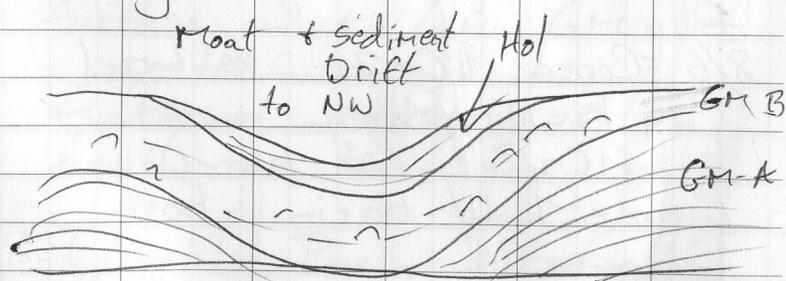 Moat & Sediment Hol
Drift
to NW
GM B
GM-A
?